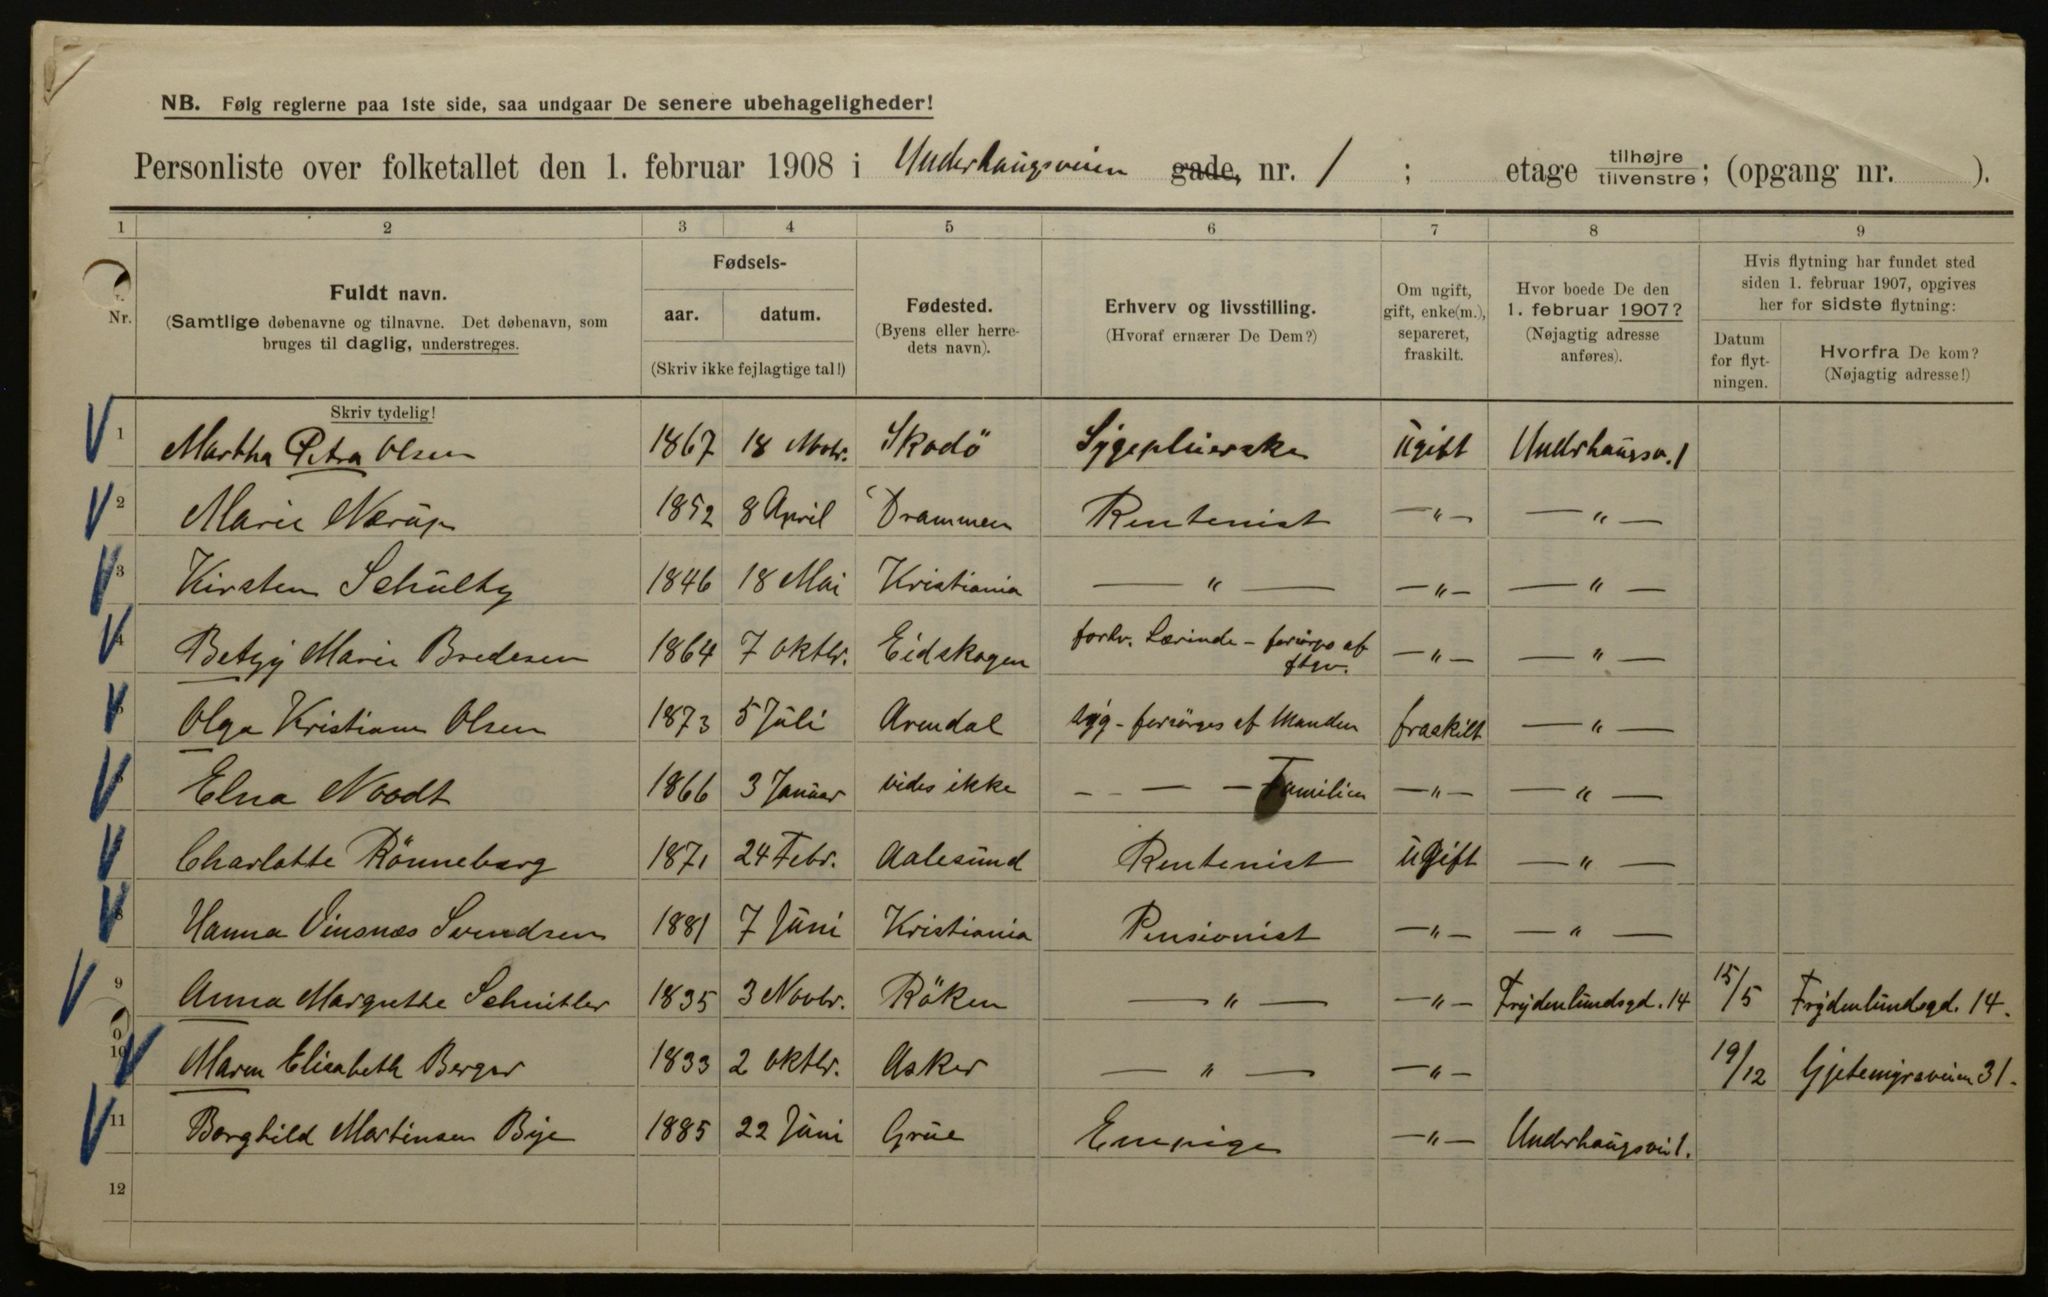 NB. Følg reglerne paa 1ste side, saa undgaar De senere ubehageligheder!
Personliste over folketallet den 1. februar 1908 i Underhaugsveien gade, nr. 1 ; etage tilhøjre tilvenstre; (opgang nr. ).
1 2 3 4 5 6 7 8 9
Nr.
Fuldt navn.
(Samtlige døbenavne og tilnavne. Det døbenavn, som
bruges til daglig, understreges.
Skriv tydelig!
Fødsels-
aar. datum.
(Skriv ikke fejlagtige tal!)
Fødested.
(Byens eller herre-
dets navn).
Erhverv og livsstilling.
(Hvoraf ernærer De Dem?)
Om ugift,
gift, enke(m.),
separeret,
fraskilt.
Hvor boede De den
1. februar 1907?
(Nøjagtig adresse
anføres).
Hvis flytning har fundet sted
siden 1. februar 1907, opgives
her for sidste flytning:
Datum
for flyt-
ningen.
Hvorfra De kom?
(Nøjagtig adresse!)
1 Martha Petra Olsen 1867 18 Novbr. Skodö Sygepluerske ugift Underhaugsv. 1
2 Marie Nærup 1852 8 April Drammen Rentenist — " — — " —
3 Kirsten Schulty 1846 18 Mai Kristiania — " — — " — — " —
4 Betzy Marie Bredesen 1864 7 oktbr. Eidskogen forhv. Lærinde - forsörges af — " — — " —
5 Olga Kristiane Olsen 1873 5 Juli Arendal syg - forsörges af Manden fraskilt — " —
6 Elna Noodt 1866 3 Januar vides ikke - - — - Familien — " — — " —
7 Charlotte Rönneberg 1871 24 Febr. Aalesund Rentenist ugift — " —
8 Hanna Vinsnæs Svendsen 1881 7 Juni Kristiania Pensionist — " — — " —
9 Anna Margrethe Schnitler 1835 3 Novbr. Röken — " — — " — Frydenlundsgd. 14 15/5 Frydenlundsgd. 14.
10 Maren Elisabeth Berger 1833 2 oktbr. Asker — " — — " — 19/12 Gjetemyrsveien 31.
11 Borghild Martinsen Bye 1885 22 Juni Grue Enepige — " — Underhaugsvei 1.
12